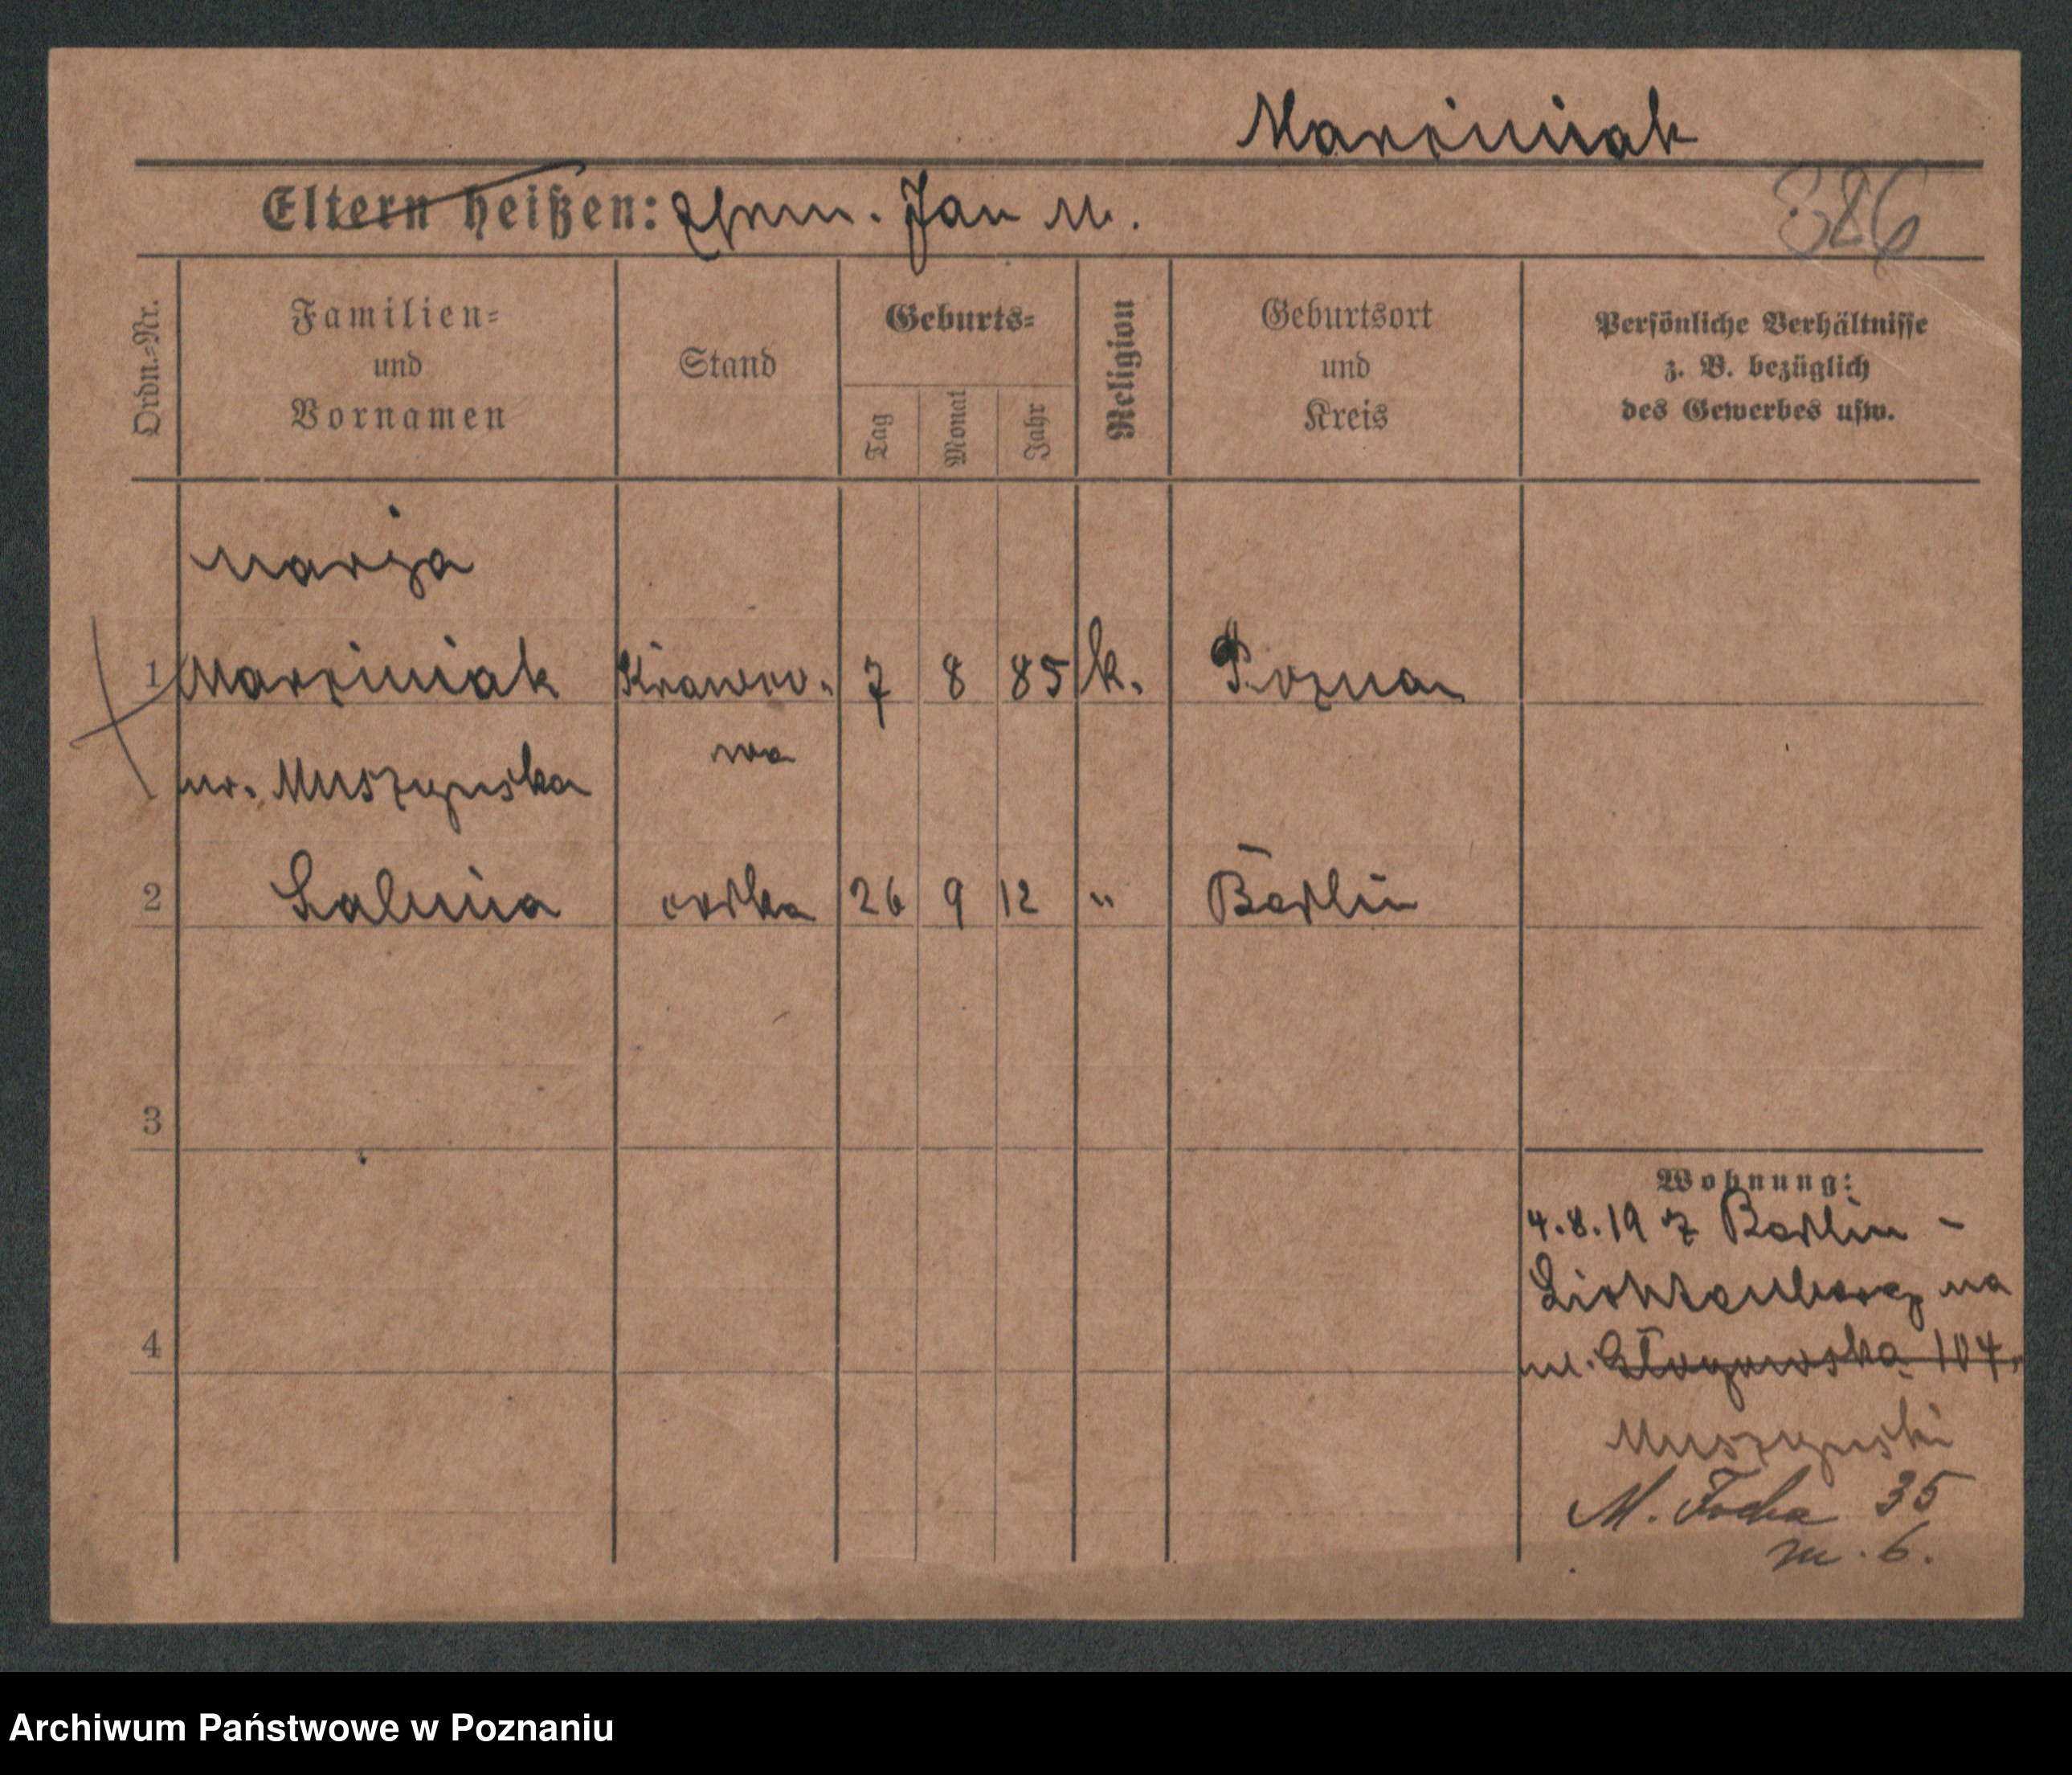 Marciniak
Eltern heißen: Ehem. Jan M.
386
Ordn.-Nr.
Familien-
und
Vornamen
Stand
Geburts-
Tag
Monat
Jahr
Religion
Geburtsort
und
Kreis
Persönliche Verhältnisse
z. B. bezüglich
des Gewerbes usw.
Marja
1 Marciniak Krawco- 7 8 85 k. Poznań
wa
ur. Muszyńska
2 Halina córka 26 9 12 " Berlin
3
Wohnung:
4.8.19 z Berlin -
Lichtenberg na
4
ul. Głogowska 104.
Muszyński
M. Focha 35
m. 6.
Archiwum Państwowe w Poznaniu